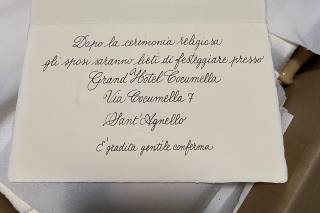 Dopo la cerimonia religiosa
gli sposi saranno lieti di festeggiare presso
Grand Hotel Cocumella
Via Cocumella 7
Sant'Agnello
E' gradita gentile conferma